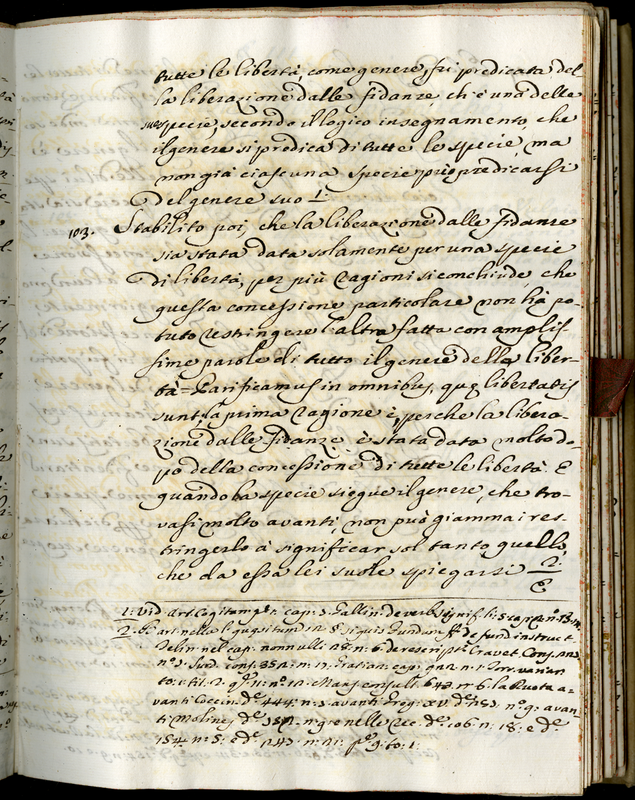 tutte le libertà, come genere, fù predicata del
la liberazione dalle fidanze, ch'è una delle
sue specie, secondo il logico insegnamento, che
il genere si predica di tutte le specie, ma
non già ciascuna specie può predicarsi
del genere suo 1:
103. Stabilito poi, che la liberazione dalle fidanze
sia stata data solamente per una specie
di libertà, per più ragioni si conchiude, che
questa concessione particolare non hà po-
tuto restringere l'altra fatta con amplis
sime parole di tutto il genere della liber-
tà = Parificamus in omnibus, quę libertatis
sunt, la prima ragione è, perche la libera-
zione dalle fidanze è stata data molto do-
po della concessione di tutte le libertà. E
quando la specie siegue il genere, che tro-
vasi molto avanti, non può giammai res-
tringerlo à significar sol tanto quello,
che da essa lei suole spiegarsi 2:
E
1: Vid. Art. Cogitam. cap: 3. Gallin: de verb. signif. li: 5 cap:
2. nella l. quęsitum 12 § si quis fundum ff. de fund. instruct.
Felin: nel cap: nonnulli 28: n: 6: de rescript. Cravet. Cons.
n.° 3: Surd. cons. 352: n: Gratian: cap: n: 1: Torr. variar
to: 1: tit: 2: n.° 12: Mans. consult: 643: n: 6: la Ruota a-
vanti Coccin: d.e 444: n: 3: avanti Greg: XV: d.e n.° 9: avan
ti Molines d.e n: 9: e nelle Rec: d.e 106: n: 18: e d.e
154: n: 5: e d.e 243: n: 41: p.e 9: to: 1: